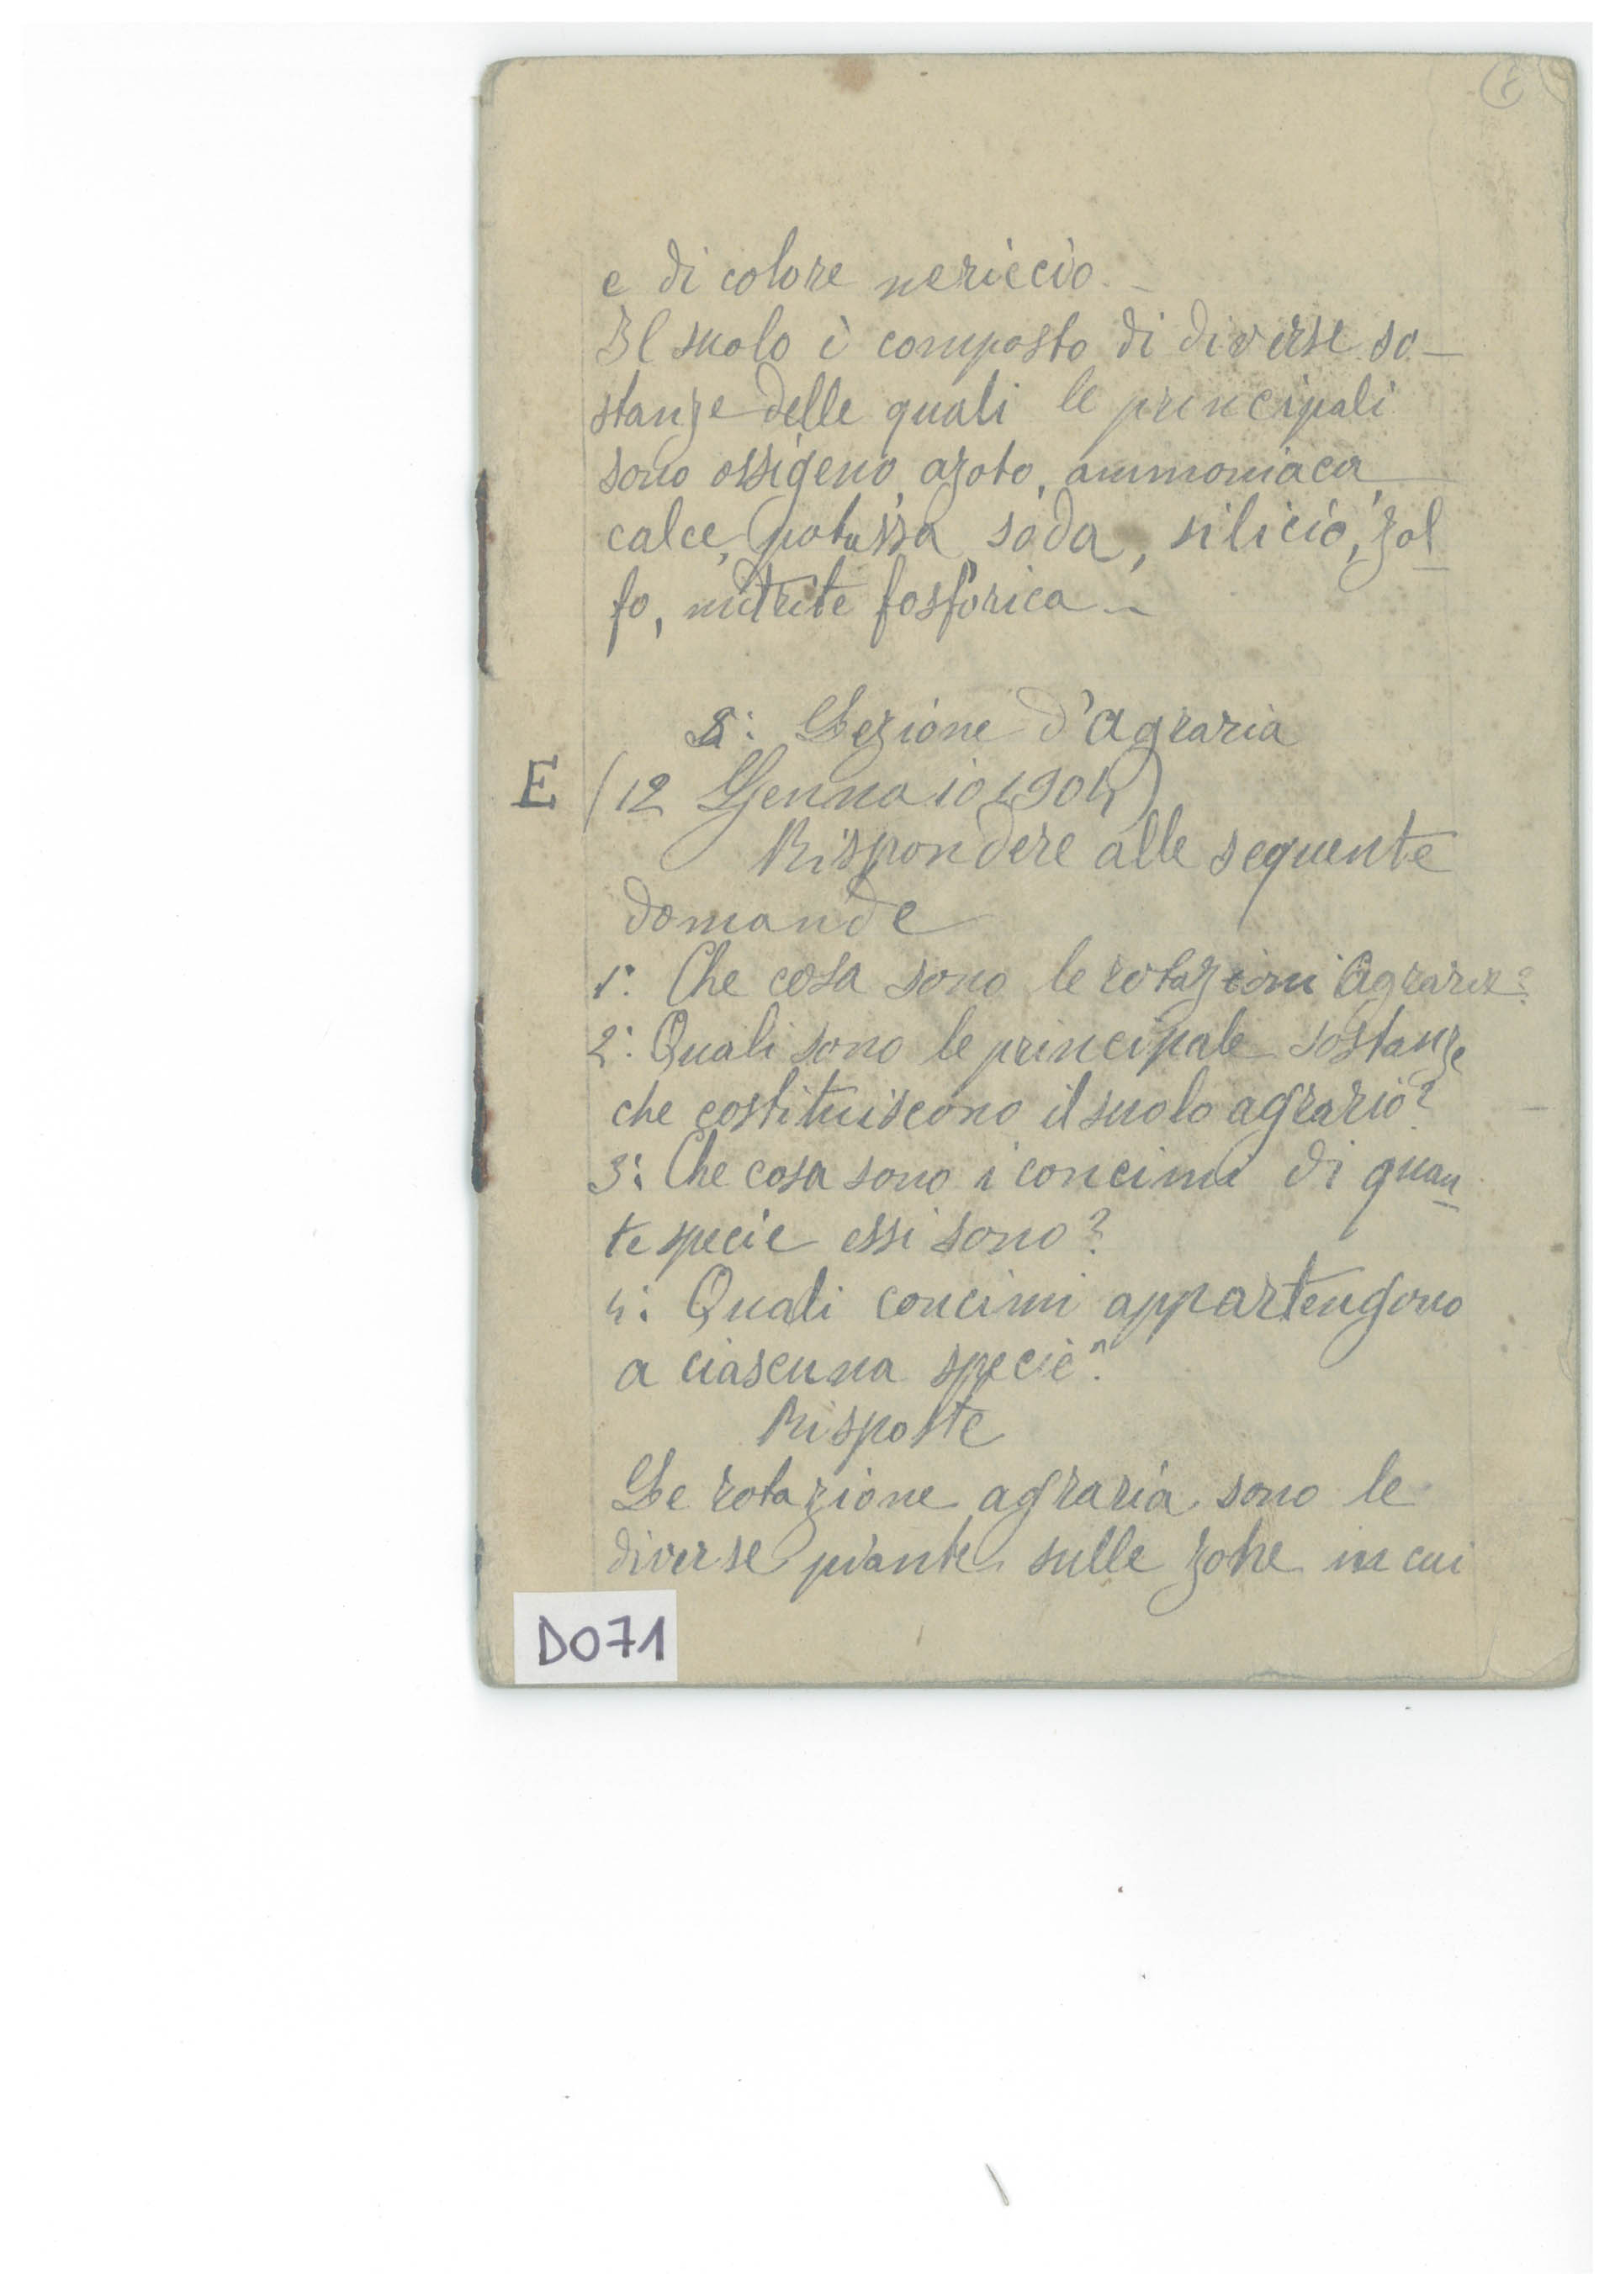 e di colore nericcio. –
Il suolo è composto di diverse so–
stanze delle quali le principali
sono ossigeno, azoto, ammoniaca,
calce, potassa, soda, silicio, zol–
fo, fosforica –
Lezione d'Agraria
E (12 Gennaio 1904)
Rispondere alle seguente
domande
1: Che cosa sono le rotazioni Agrarie?
2: Quali sono le principale sostanze
che costituiscono il suolo agrario?
3: Che cosa sono i concimi di quan–
te specie essi sono?
4: Quali concimi appartengono
a ciascuna specie?
Risposte
Le rotazione agraria sono le
diverse piante sulle zone in cui
D071